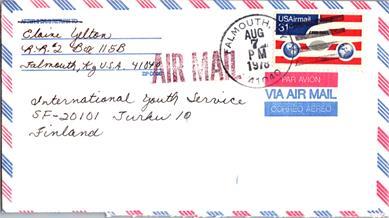 AFTER 5 DAYS RETURN TO
Claire Yelton
R.R. 2 Box 115B
Falmouth, Ky U.S.A. 41040
ZIP CODE
AIR MAIL
FALMOUTH,
AUG
7
PM
1978
41040
USAirmail
31c
PAR AVION
VIA AIR MAIL
CORREO AEREO
International Youth Service
SF-20101 Turku 10
Finland